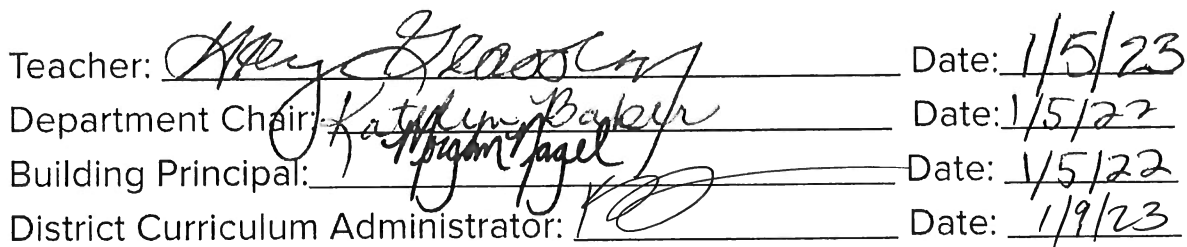 Teacher: Date: 1/5/23
Department Chair: Kathlym Baker Date: 1/5/22
Building Principal: Morgan Nagel Date: 1/5/22
District Curriculum Administrator: Date: 1/9/23